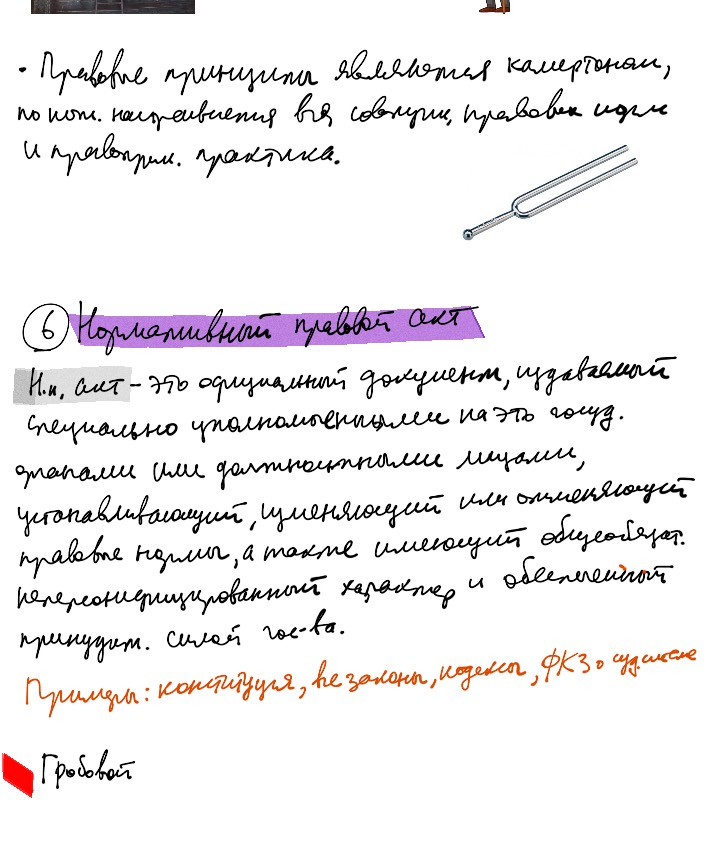 • Правовые принципы являются камертоном,
по кот. настраивается вся совокупн. правовых норм
и правоприм. практика.
6 Нормативный правовой акт
Н.п. акт – это официальный документ, издаваемый
специально уполномоченными на это госуд.
органами или должностными лицами,
устанавливающий, изменяющий или отменяющий
правовые нормы, а также имеющий общеобязат.
неперсонифицированный характер и обеспеченный
принудит. силой гос-ва.
Примеры: конституция, все законы, кодексы, ФКЗ о суд. системе
Гробовой